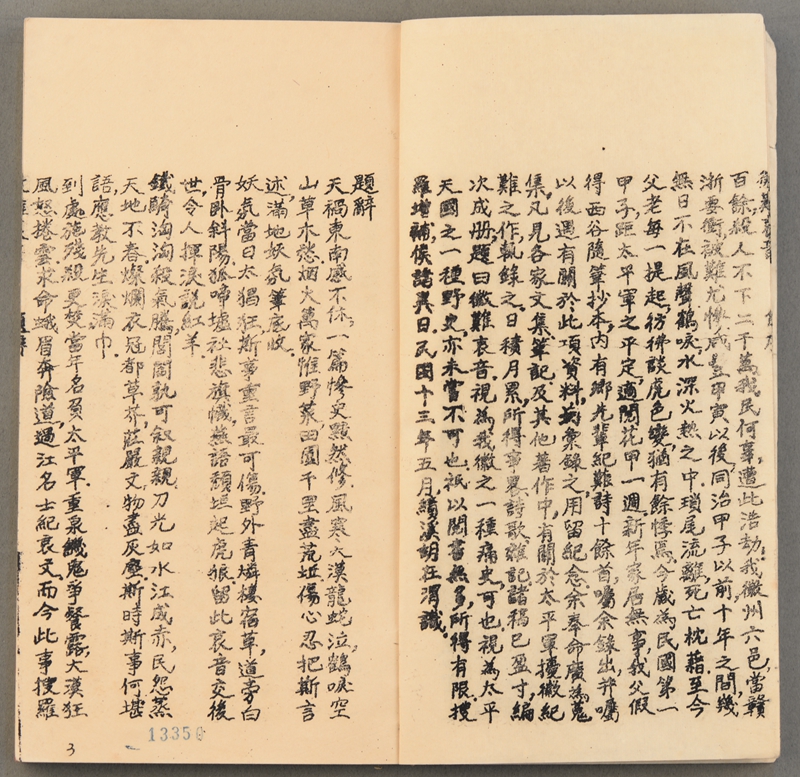 百餘，殺人不下二千萬，我民何辜，遭此浩劫。我徽州六邑，當贛
浙要衝，被難尤慘。咸豐甲寅以後，同治甲子以前，十年之間，幾
無日不在風聲鶴唳，水深火熱之中，瑣尾流離，死亡枕藉。至今
父老每一提起，彷彿談虎色變，猶有餘悸焉。今歲為民國第一
甲子，距太平軍之平定，適閱花甲一週。新年家居無事，我父假
得西谷隨筆抄本，內有鄉先輩紀難詩十餘首，囑余錄出，并囑
以後遇有關於此項資料，彙錄之，用留紀念。余奉命廣為蒐
集，凡見各家文集筆記及其他著作中，有關於太平軍擾徽紀
難之作，輒錄之。日積月累，所得事畧詩歌雜記諸稿已盈寸，編
次成册，題曰徽難哀音。視為我徽之一種痛史可也，視為太平
天國之一種野史，亦未嘗不可也。祇以閱書無多，所得有限，搜
羅增補，俟諸異日。民國十三年五月，績溪胡在渭識。
題辭
天禍東南感不休，一篇慘史黯然修。風寒大漠龍蛇泣，鶴唳空
山草木愁。烟火萬家惟野菜，田園千里盡荒坵。傷心忍把斯言
述，滿地妖氛筆底收。
妖氛當日太猖狂，斯事重言最可傷。野外青燐棲宿草，道旁白
骨臥斜陽。狐啼墟社悲旗幟，燕語頹垣起虎狼。留此哀音交後
世，令人揮淚說紅羊。
鐵騎洶洶殺氣騰，閭閻孰可叙親親。刀光如水江成赤，民怨熏
天地不春。燦爛衣冠都草芥，莊嚴文物盡灰塵。斯時斯事何堪
語，應教先生淚滿巾。
到處施殘殺更焚，當年名負太平軍。重泉饑鬼爭餐露，大漠狂
風怒捲雲。求命蛾眉奔險道，過江名士紀哀文。而今此事搜羅
3
13350